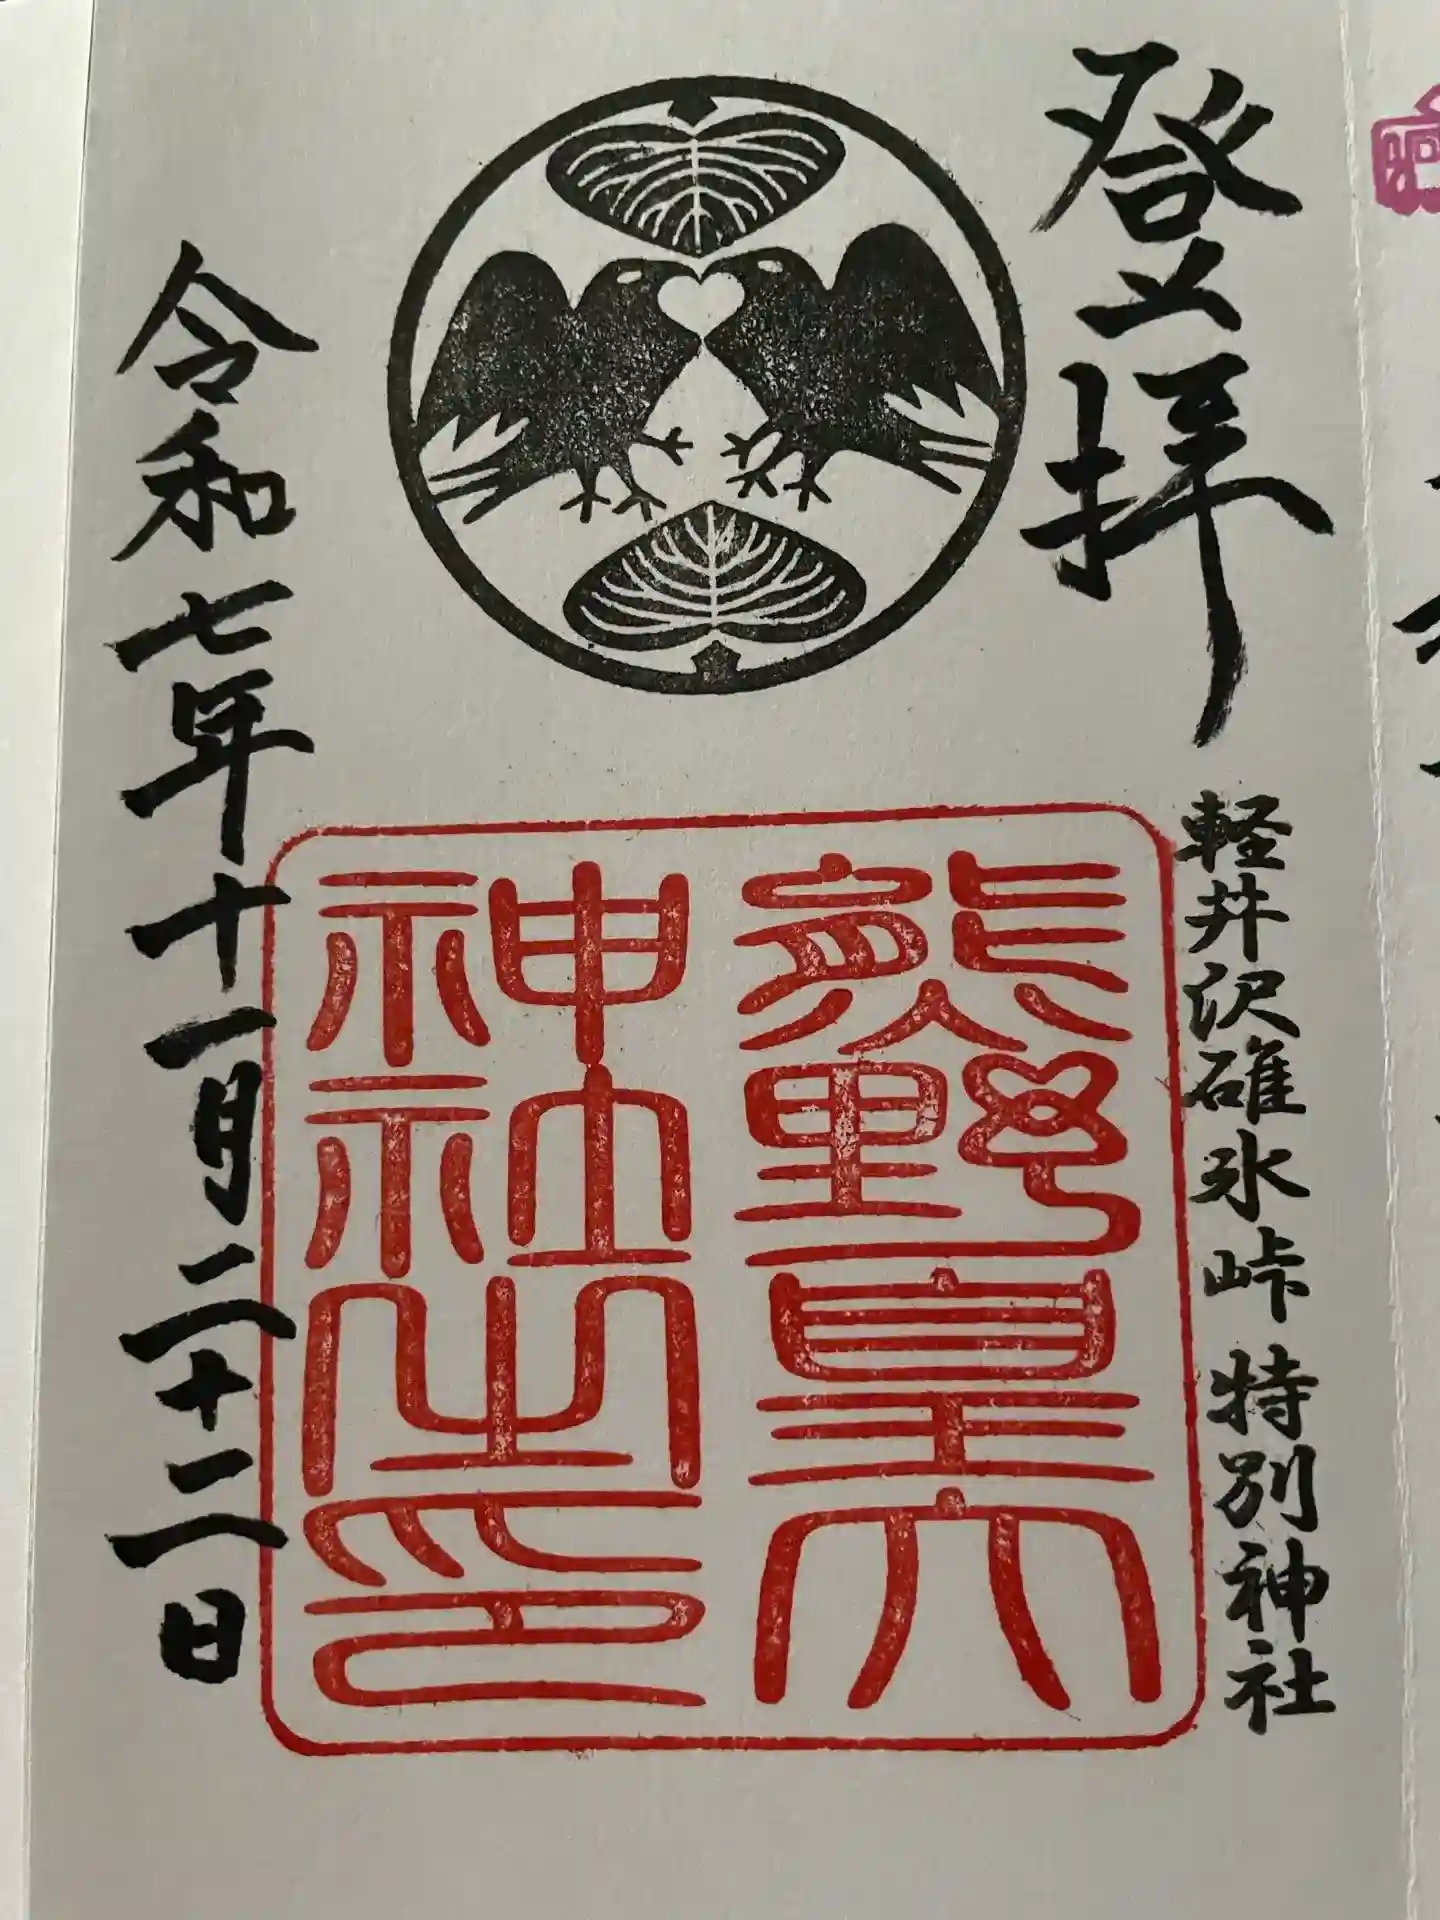 登拝
軽井沢碓氷峠 特別神社
熊野皇大
神社之印
令和七年十一月二十二日